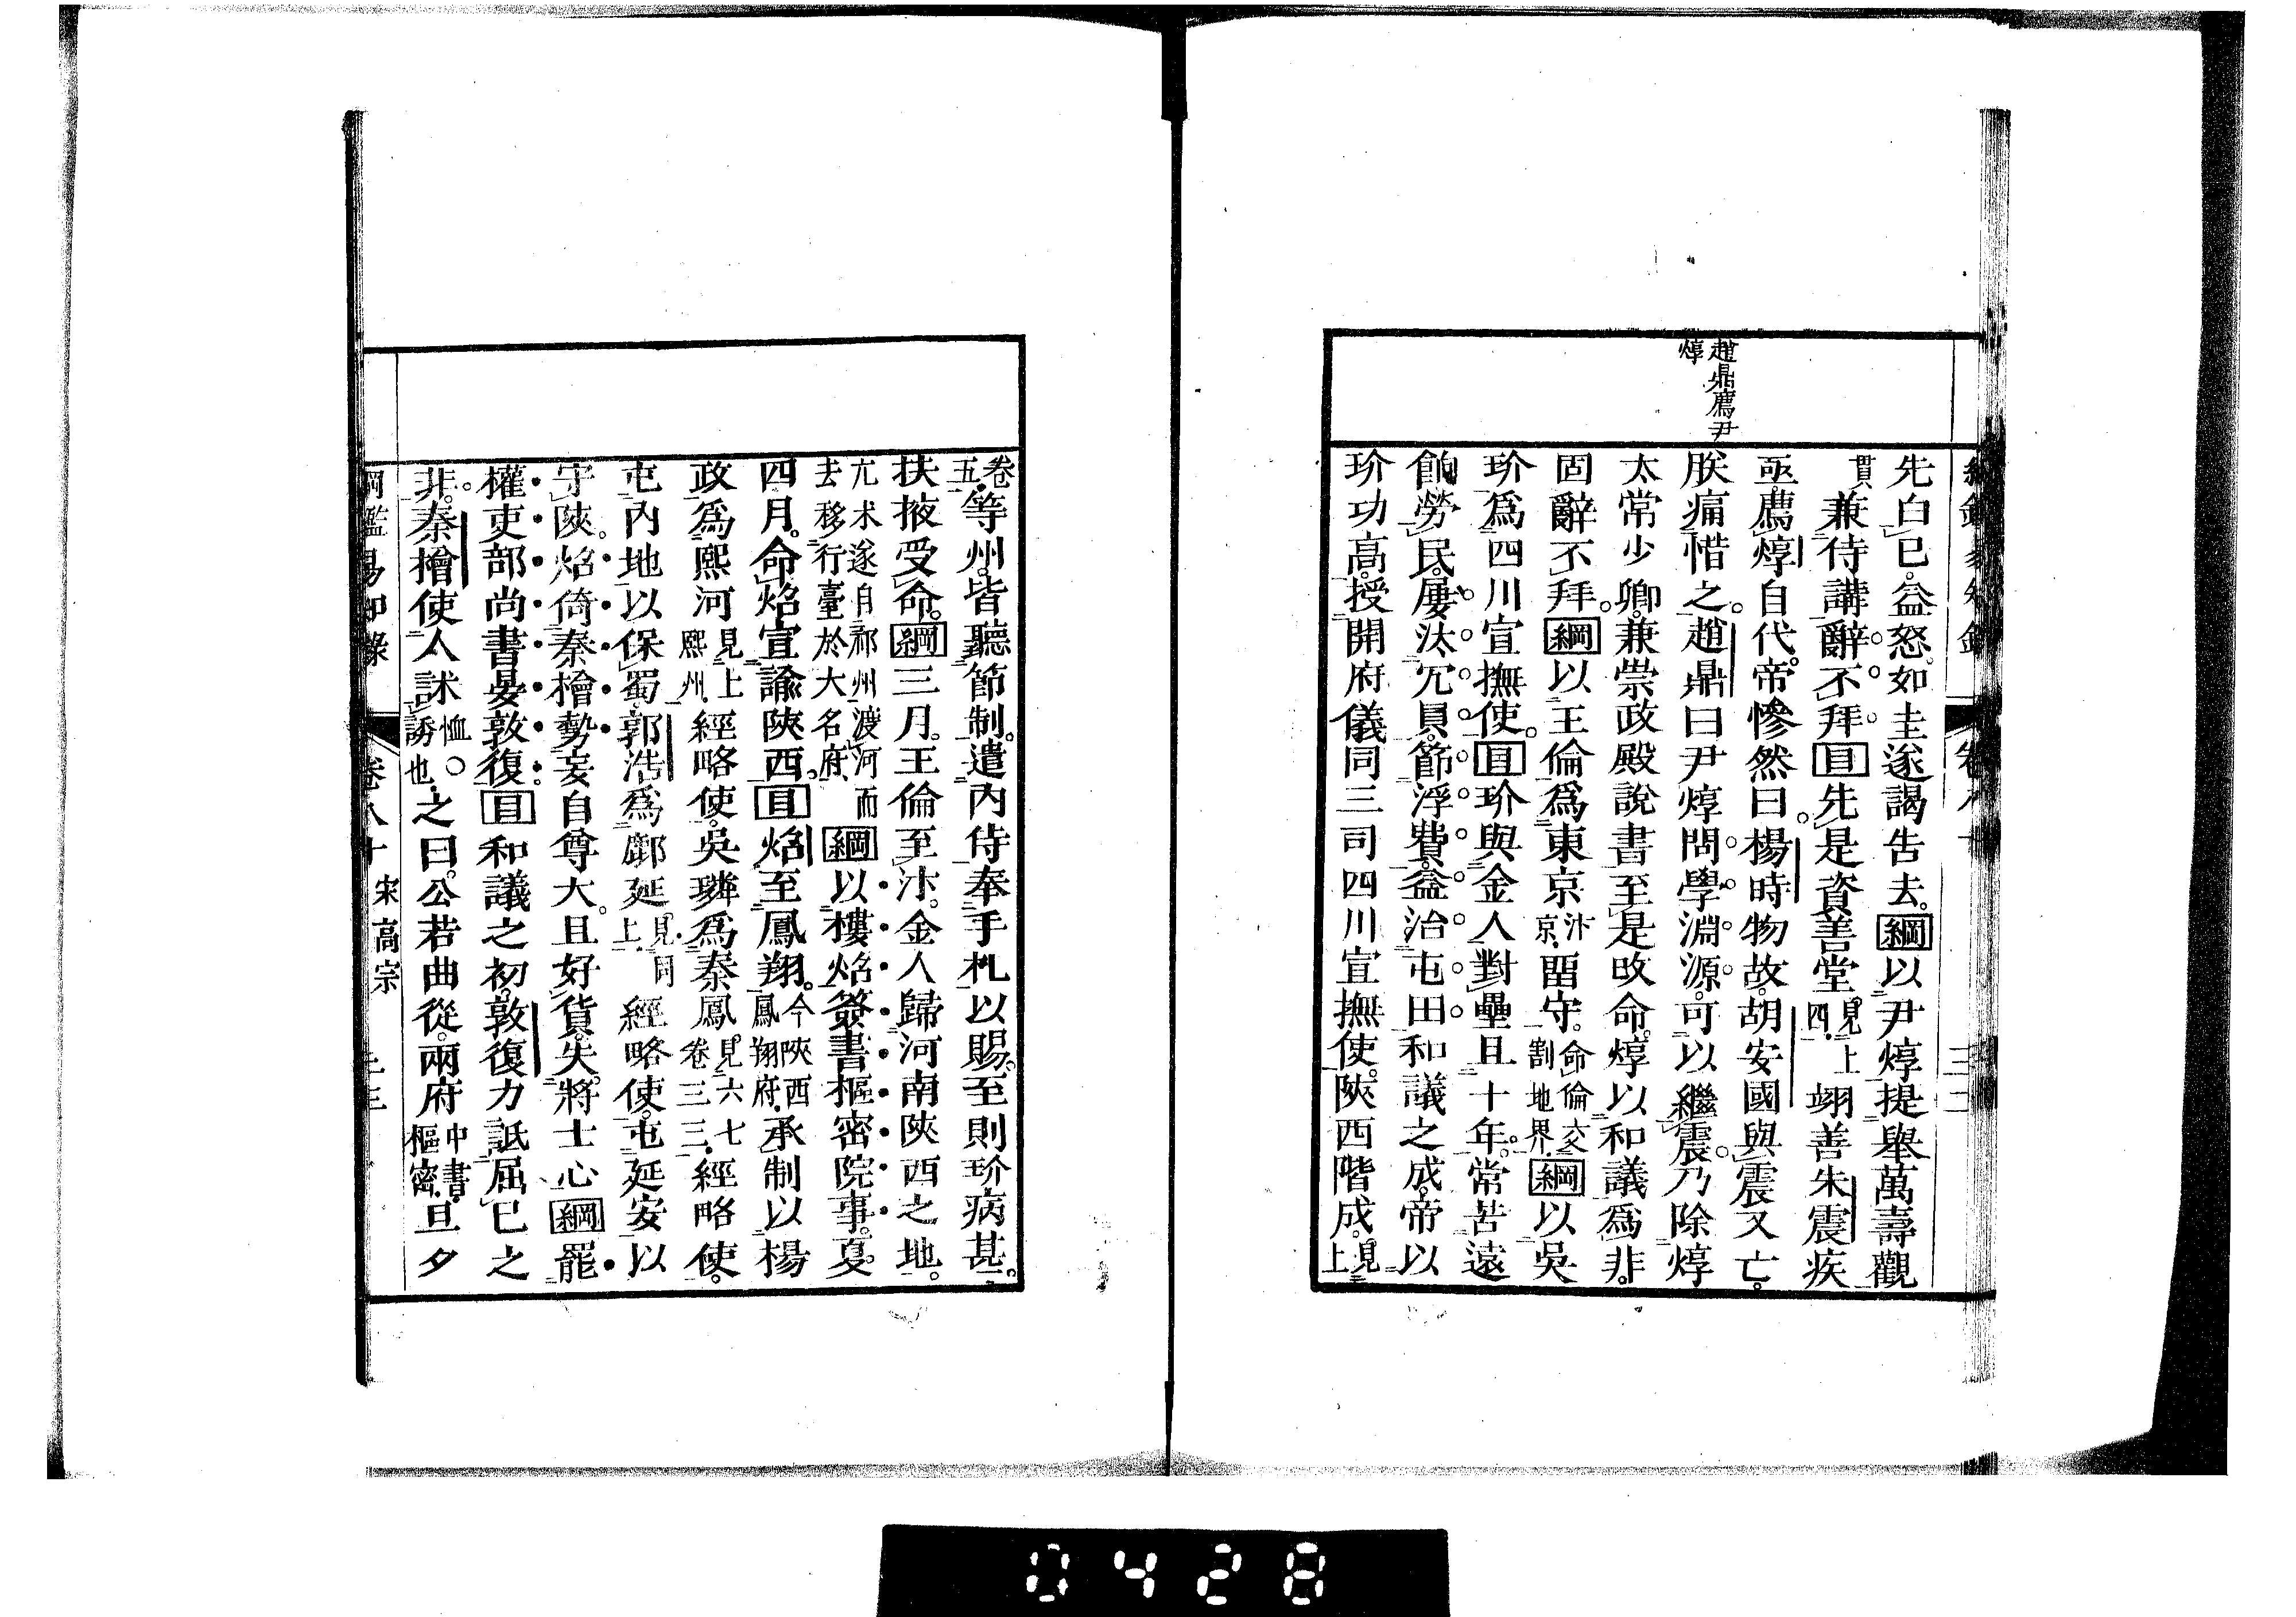 趙鼎薦尹
焞
先白已益怒如圭遂謁告去綱以尹焞提舉萬壽觀
貫兼侍講辭不拜目先是資善堂見上四翊善朱震疾
亟薦焞自代帝慘然曰楊時物故胡安國與震又亡
朕痛惜之趙鼎曰尹焞問學淵源可以繼震乃除焞
太常少卿兼崇政殿說書至是改命焞以和議爲非
固辭不拜綱以王倫爲東京汴京留守命倫交割地界綱以吳
玠爲四川宣撫使目玠與金人對壘且十年常苦遠
餉勞民屢汰冗員節浮費益治屯田和議之成帝以
玠功高授開府儀同三司四川宣撫使陝西階成見上
卷五等州皆聽節制遣內侍奉手札以賜至則玠病甚
扶掖受命綱三月王倫至汴金人歸河南陝西之地
兀朮遂自祁州渡河而去移行臺於大名府綱以樓炤簽書樞密院事夏
四月命炤宣諭陝西目炤至鳳翔今陝西鳳翔府承制以楊
政爲熙河見上熙州經略使吳璘爲秦鳳見六七卷三三經略使
屯內地以保蜀郭浩爲鄜延見同上經略使屯延安以
守陝炤倚秦檜勢妄自尊大且好貨失將士心綱罷
權吏部尚書晏敦復目和議之初敦復力詆屈已之
非秦檜使人訹恤○誘也之曰公若曲從兩府中書樞密旦夕
綱鑑易知錄 卷八十 宋高宗
0428